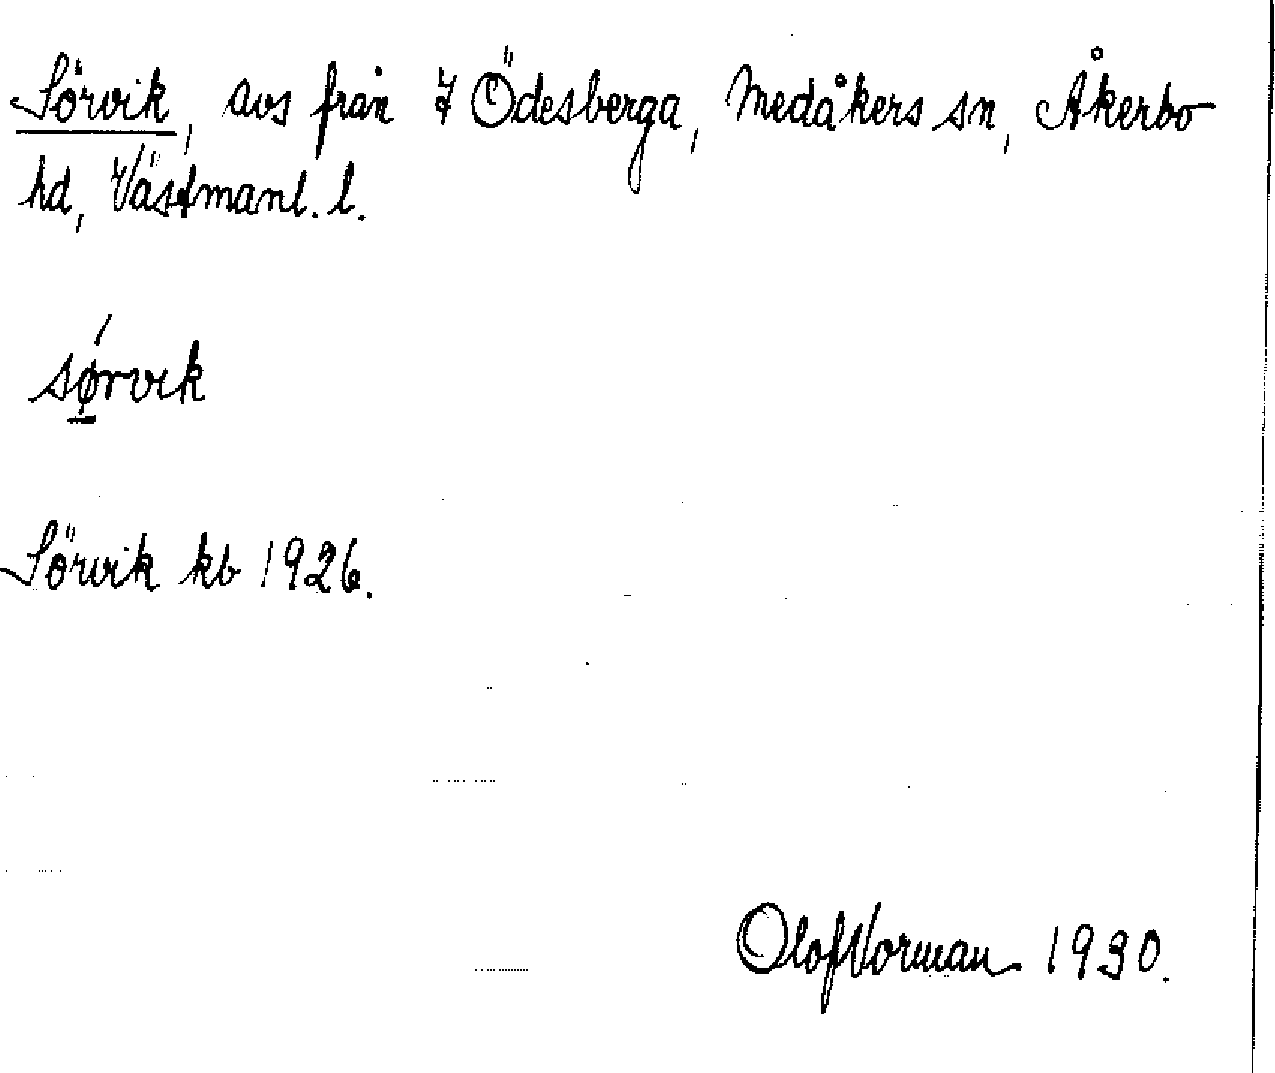 Sörvik, avs från 7 Ödesberga, Medåkers sn, Åkerbo
hd, Västmanl. l.
sørvɩk
Sörvik kb 1926.
Olof Vorman 1930.